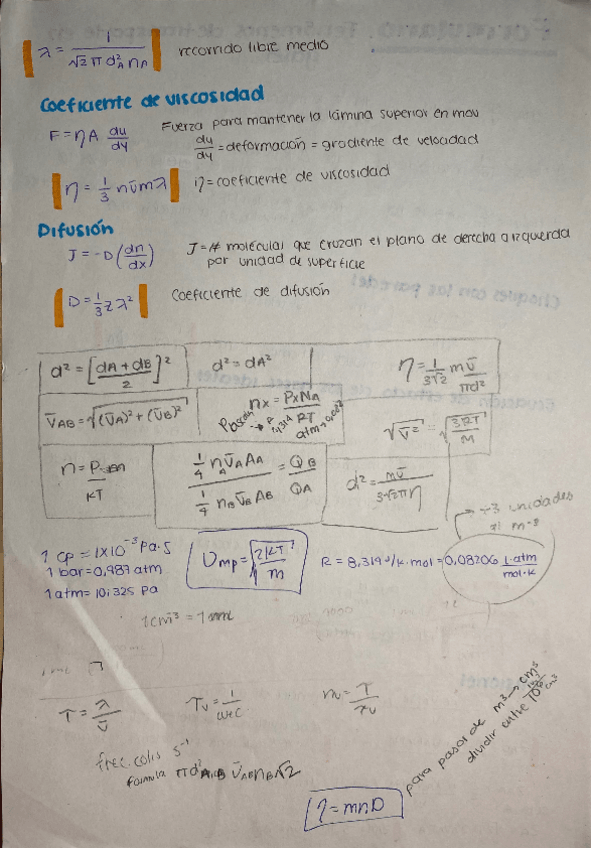 λ = 1 / √2 π d²A nA   recorrido libre medio
Coeficiente de viscosidad
F = ηA du/dy   Fuerza para mantener la lámina superior en mov
du/dy = deformación = gradiente de velocidad
η = 1/3 n v̄ m λ   η = coeficiente de viscosidad
Difusión
J = -D (dn/dx)   J = # moléculas que cruzan el plano de derecha a izquierda
por unidad de superficie
D = 1/3 z λ²   Coeficiente de difusión
d² = [dA + dB / 2]²   d² = dA²   η = 1/3√2 m v̄ / π d²
v̄AB = √(v̄A)² + (v̄B)²   nx = Px NA / RT   √v̄² = √3RT/M
Pascal → 8.314   atm →
n = P / KT   1/4 nA v̄A AA / 1/4 nB v̄B AB = QB / QA   d² = m v̄ / 3√2 π η
→ 3 unidades
1 cp = 1x10⁻³ Pa·s   Ump = √2KT/m   R = 8,314 J/K·mol = 0,08206 l·atm/mol·K
1 bar = 0,987 atm
1 atm = 101325 Pa
1 cm³ = 1 ml
τ = λ / v̄
frec. colis s⁻¹
formula π d²AB v̄AB nB √2
para pasar de m³ → cm³
dividir entre 10⁶
η = mnD